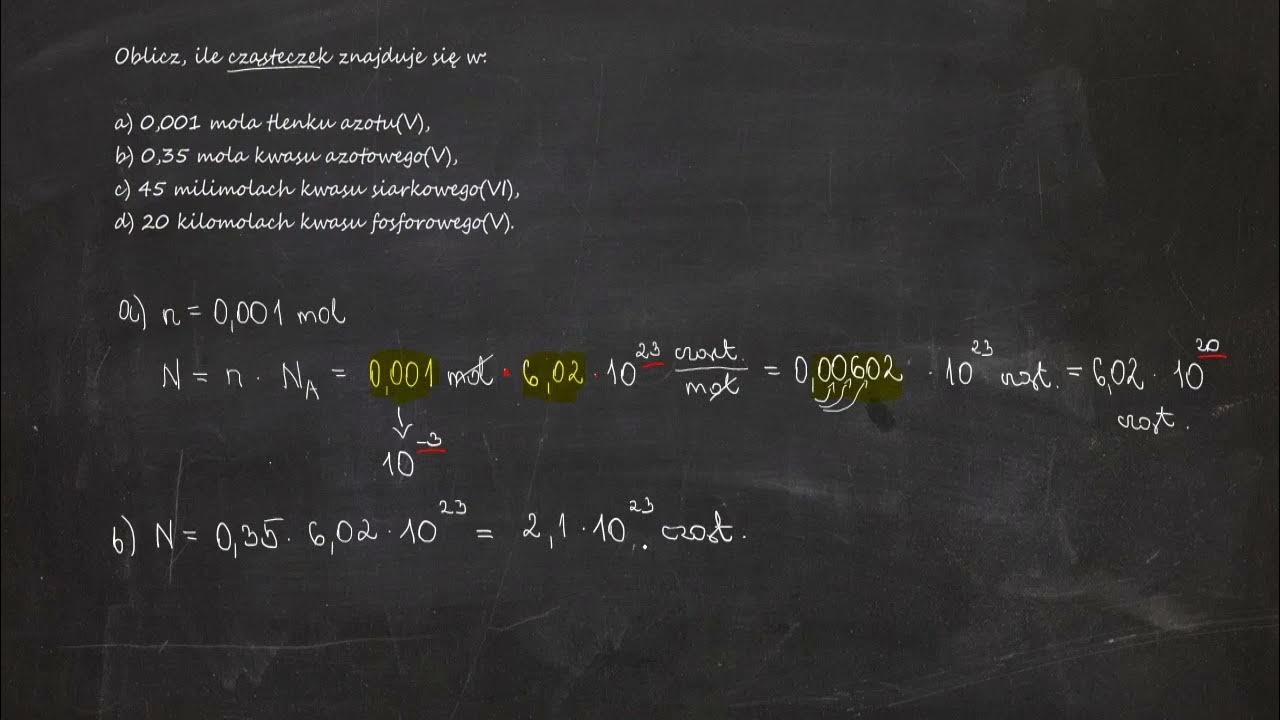 Oblicz, ile cząsteczek znajduje się w:
a) 0,001 mola tlenku azotu(V),
b) 0,35 mola kwasu azotowego(V),
c) 45 milimolach kwasu siarkowego(VI),
d) 20 kilomolach kwasu fosforowego(V).
a) n = 0,001 mol
N = n · N_A = 0,001 mol · 6,02 · 10^23 cząst./mol = 0,00602 · 10^23 cząst. = 6,02 · 10^20
cząst.
10^-3
b) N = 0,35 · 6,02 · 10^23 = 2,1 · 10^23 cząst.